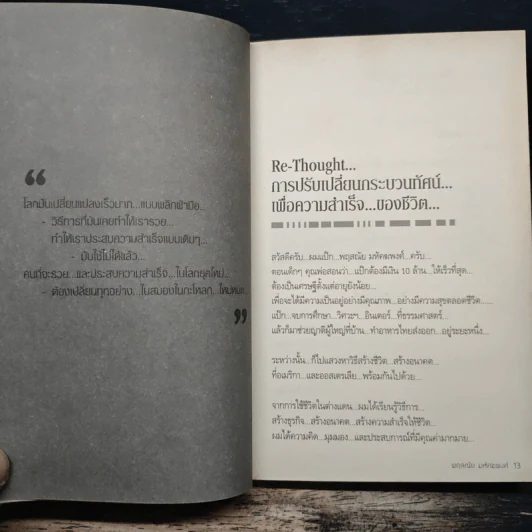 “
โลกมันเปลี่ยนแปลงเร็วมาก...แบบพลิกฝ่ามือ...
- วิธีการที่มันเคยทำให้เรารวย...
ทำให้เราประสบความสำเร็จแบบเดิมๆ...
- มันใช้ไม่ได้แล้ว...
คนที่จะรวย...และประสบความสำเร็จ...ในโลกยุคใหม่...
- ต้องเปลี่ยนทุกอย่าง...ในสมองในกะโหลก...ใหม่หมด...
”
Re-Thought...
การปรับเปลี่ยนกระบวนทัศน์...
เพื่อความสำเร็จ...ของชีวิต...
สวัสดีครับ...ผมแป๊ก...พฤสณัย มหัคฆพงศ์...ครับ...
ตอนเด็กๆ คุณพ่อสอนว่า...แป๊กต้องมีเงิน 10 ล้าน...ให้เร็วที่สุด...
ต้องเป็นเศรษฐีตั้งแต่อายุยังน้อย...
เพื่อจะได้มีความเป็นอยู่อย่างมีคุณภาพ...อย่างมีความสุขตลอดชีวิต......
แป๊ก...จบการศึกษา...วิศวะฯ...อินเตอร์...ที่ธรรมศาสตร์...
แล้วก็มาช่วยญาติผู้ใหญ่ที่บ้าน...ทำอาหารไทยส่งออก...อยู่ระยะหนึ่ง...
ระหว่างนั้น...ก็ไปแสวงหาวิธีสร้างชีวิต...สร้างอนาคต...
ที่อเมริกา...และออสเตรเลีย...พร้อมกันไปด้วย...
จากการใช้ชีวิตในต่างแดน...ผมได้เรียนรู้วิธีการ...
สร้างธุรกิจ...สร้างอนาคต...สร้างความสำเร็จให้ชีวิต...
ผมได้ความคิด...มุมมอง...และประสบการณ์ที่มีคุณค่ามากมาย...
พฤสณัย มหัคฆพงศ์ 13